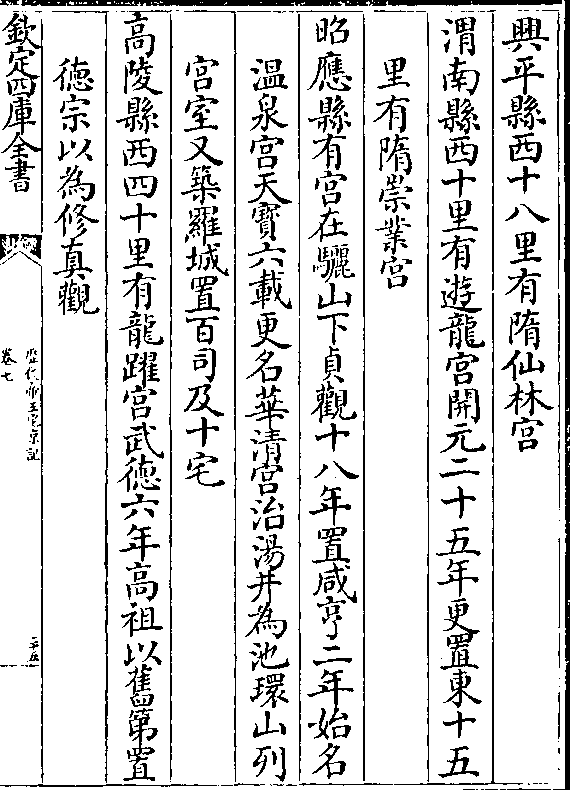 興平縣西十八里有隋仙林宫
渭南縣西十里有遊龍宫開元二十五年更置東十五
里有隋崇業宫
昭應縣有宫在驪山下貞觀十八年置咸亨二年始名
温泉宫天寳六載更名華清宫治湯井為池環山列
宫室又築羅城置百司及十宅
高陵縣西四十里有龍躍宫武徳六年高祖以舊第置
徳宗以為修真觀
欽定四庫全書
歴代帝王宅京記
卷七
二十五